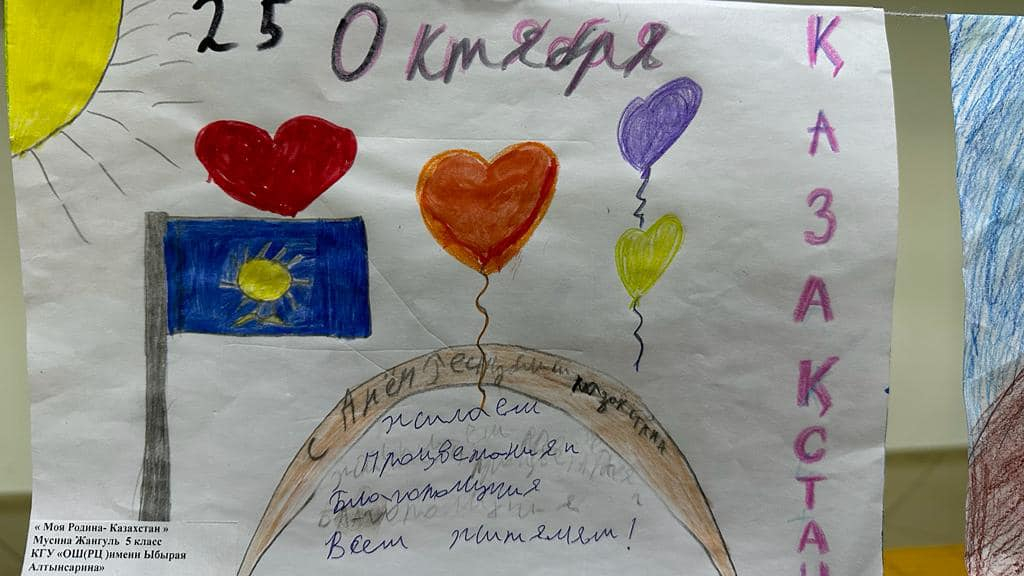 25 Октября
ҚАЗАҚСТАН
С Днём Республики Казахстан
желаем
процветания и
благополучия
всем жителям!
« Моя Родина- Казахстан »
Мусина Жангуль 5 класс
КГУ «ОШ(РЦ )имени Ыбырая
Алтынсарина»